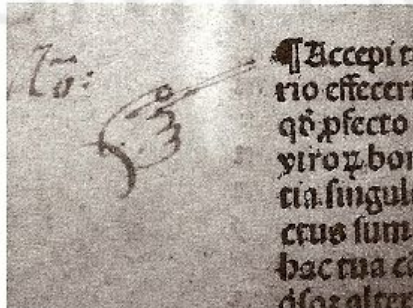 No:
¶Accepi t
rio effecer
qð ꝓfecto
viroꝝ bon
tia singul
ctus sum
hac tua c